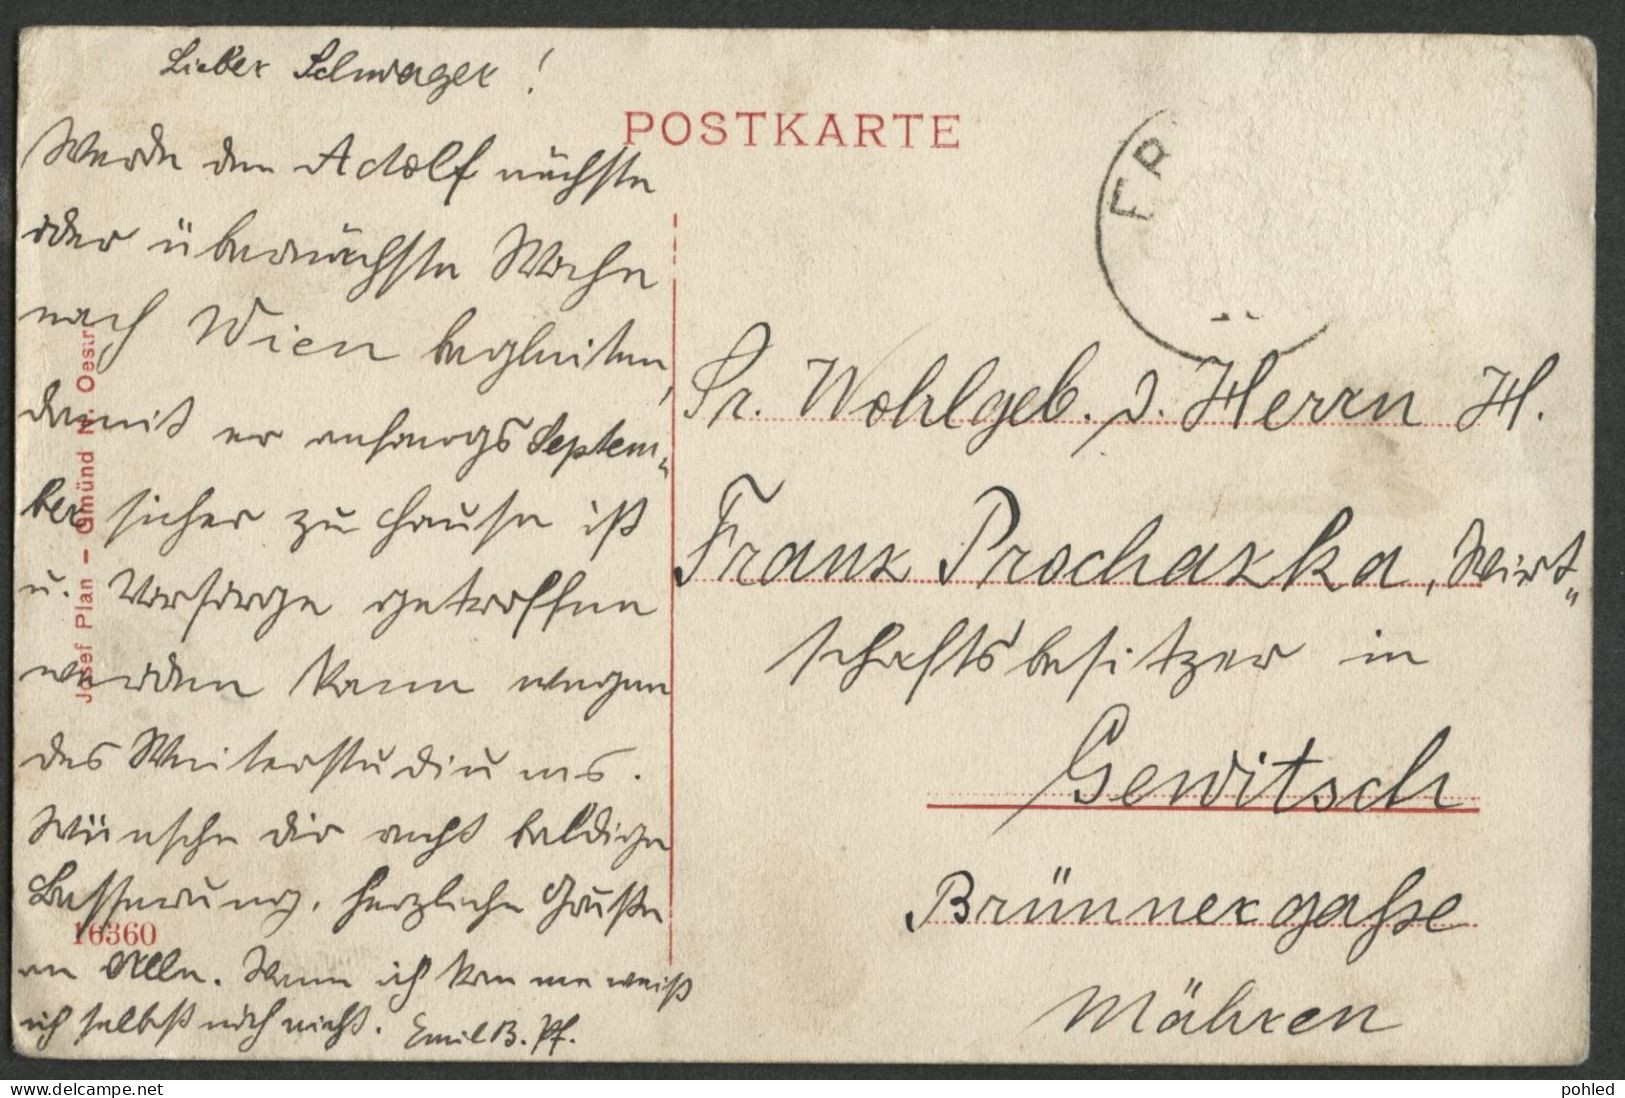 Lieber Schwager!
Werde den Adolf nächste
oder übernächste Woche
nach Wien begleiten,
damit er anfangs Septem„
ber sicher zu Hause ist
u. Vorsorge getroffen
werden kann wegen
des Weiterstudiums.
Wünsche dir recht baldige
Besserung. Herzliche Grüße
an Alle. Wann ich komme weiß
ich selbst noch nicht. Emil B. Pf.
POSTKARTE
FR
Sr. Wohlgeb. d. Herrn H.
Franz Prochazka, Wirt„
schaftsbesitzer in
Gewitsch
Brünnergasse
Mähren
Josef Plan – Gmünd N. Oestr.
16360
pohled